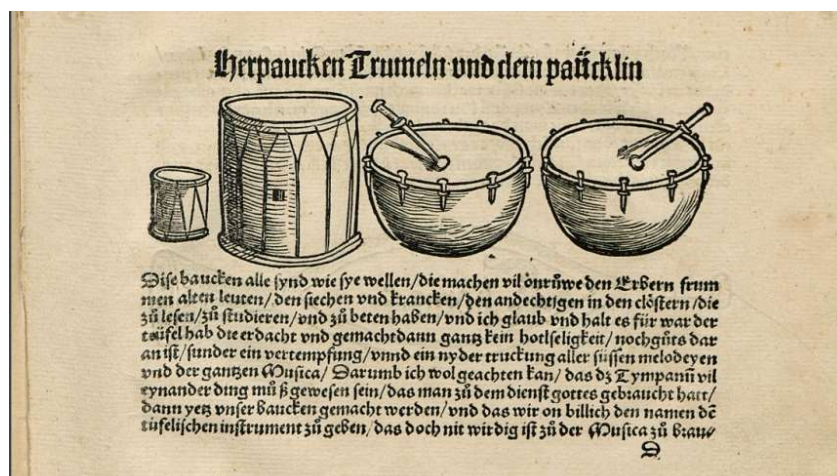 Herpaucken Trumeln vnd clein paücklin
Dise baucken alle synd wie sye wellen/die machen vil onrůwe den Erbern frum
men alten leuten/den siechen vnd krancken/den andechtigen in den clöstern/die
zů lesen/zů studieren/vnd zů beten haben/vnd ich glaub vnd halt es für war der
teüfel hab die erdacht vnd gemacht dann gantz kein holtseligkeit/noch gůts dar
an ist/sunder ein vertempfung/vnnd ein nyder truckung aller süssen melodeyen
vnd der gantzen Musica/Darumb ich wol geachten kan/das dz Tympanū vil
eynander ding můß gewesen sein/das man zů dem dienst gottes gebraucht hatt/
dann yetz vnser baucken gemacht werden/vnd das wir on billich den namen dē
tüfelischen instrument zů geben/das doch nit wirdig ist zů der Musica zů brau/
D